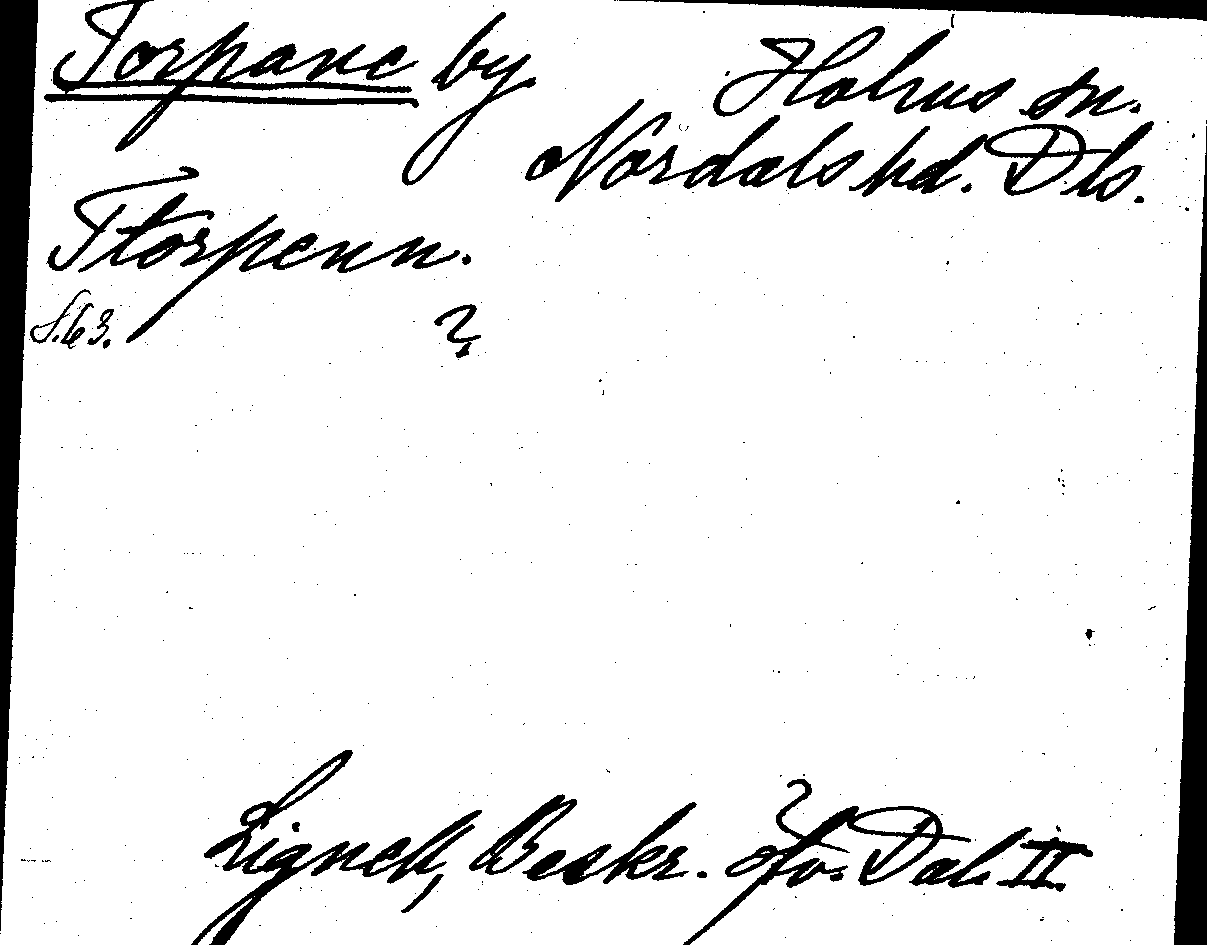 Torpane by
Holms sn.
Nordals hd. Dls.
Ttorpenn.
S. 63. ?
Lignell, Beskr. öfv. Dal. II.